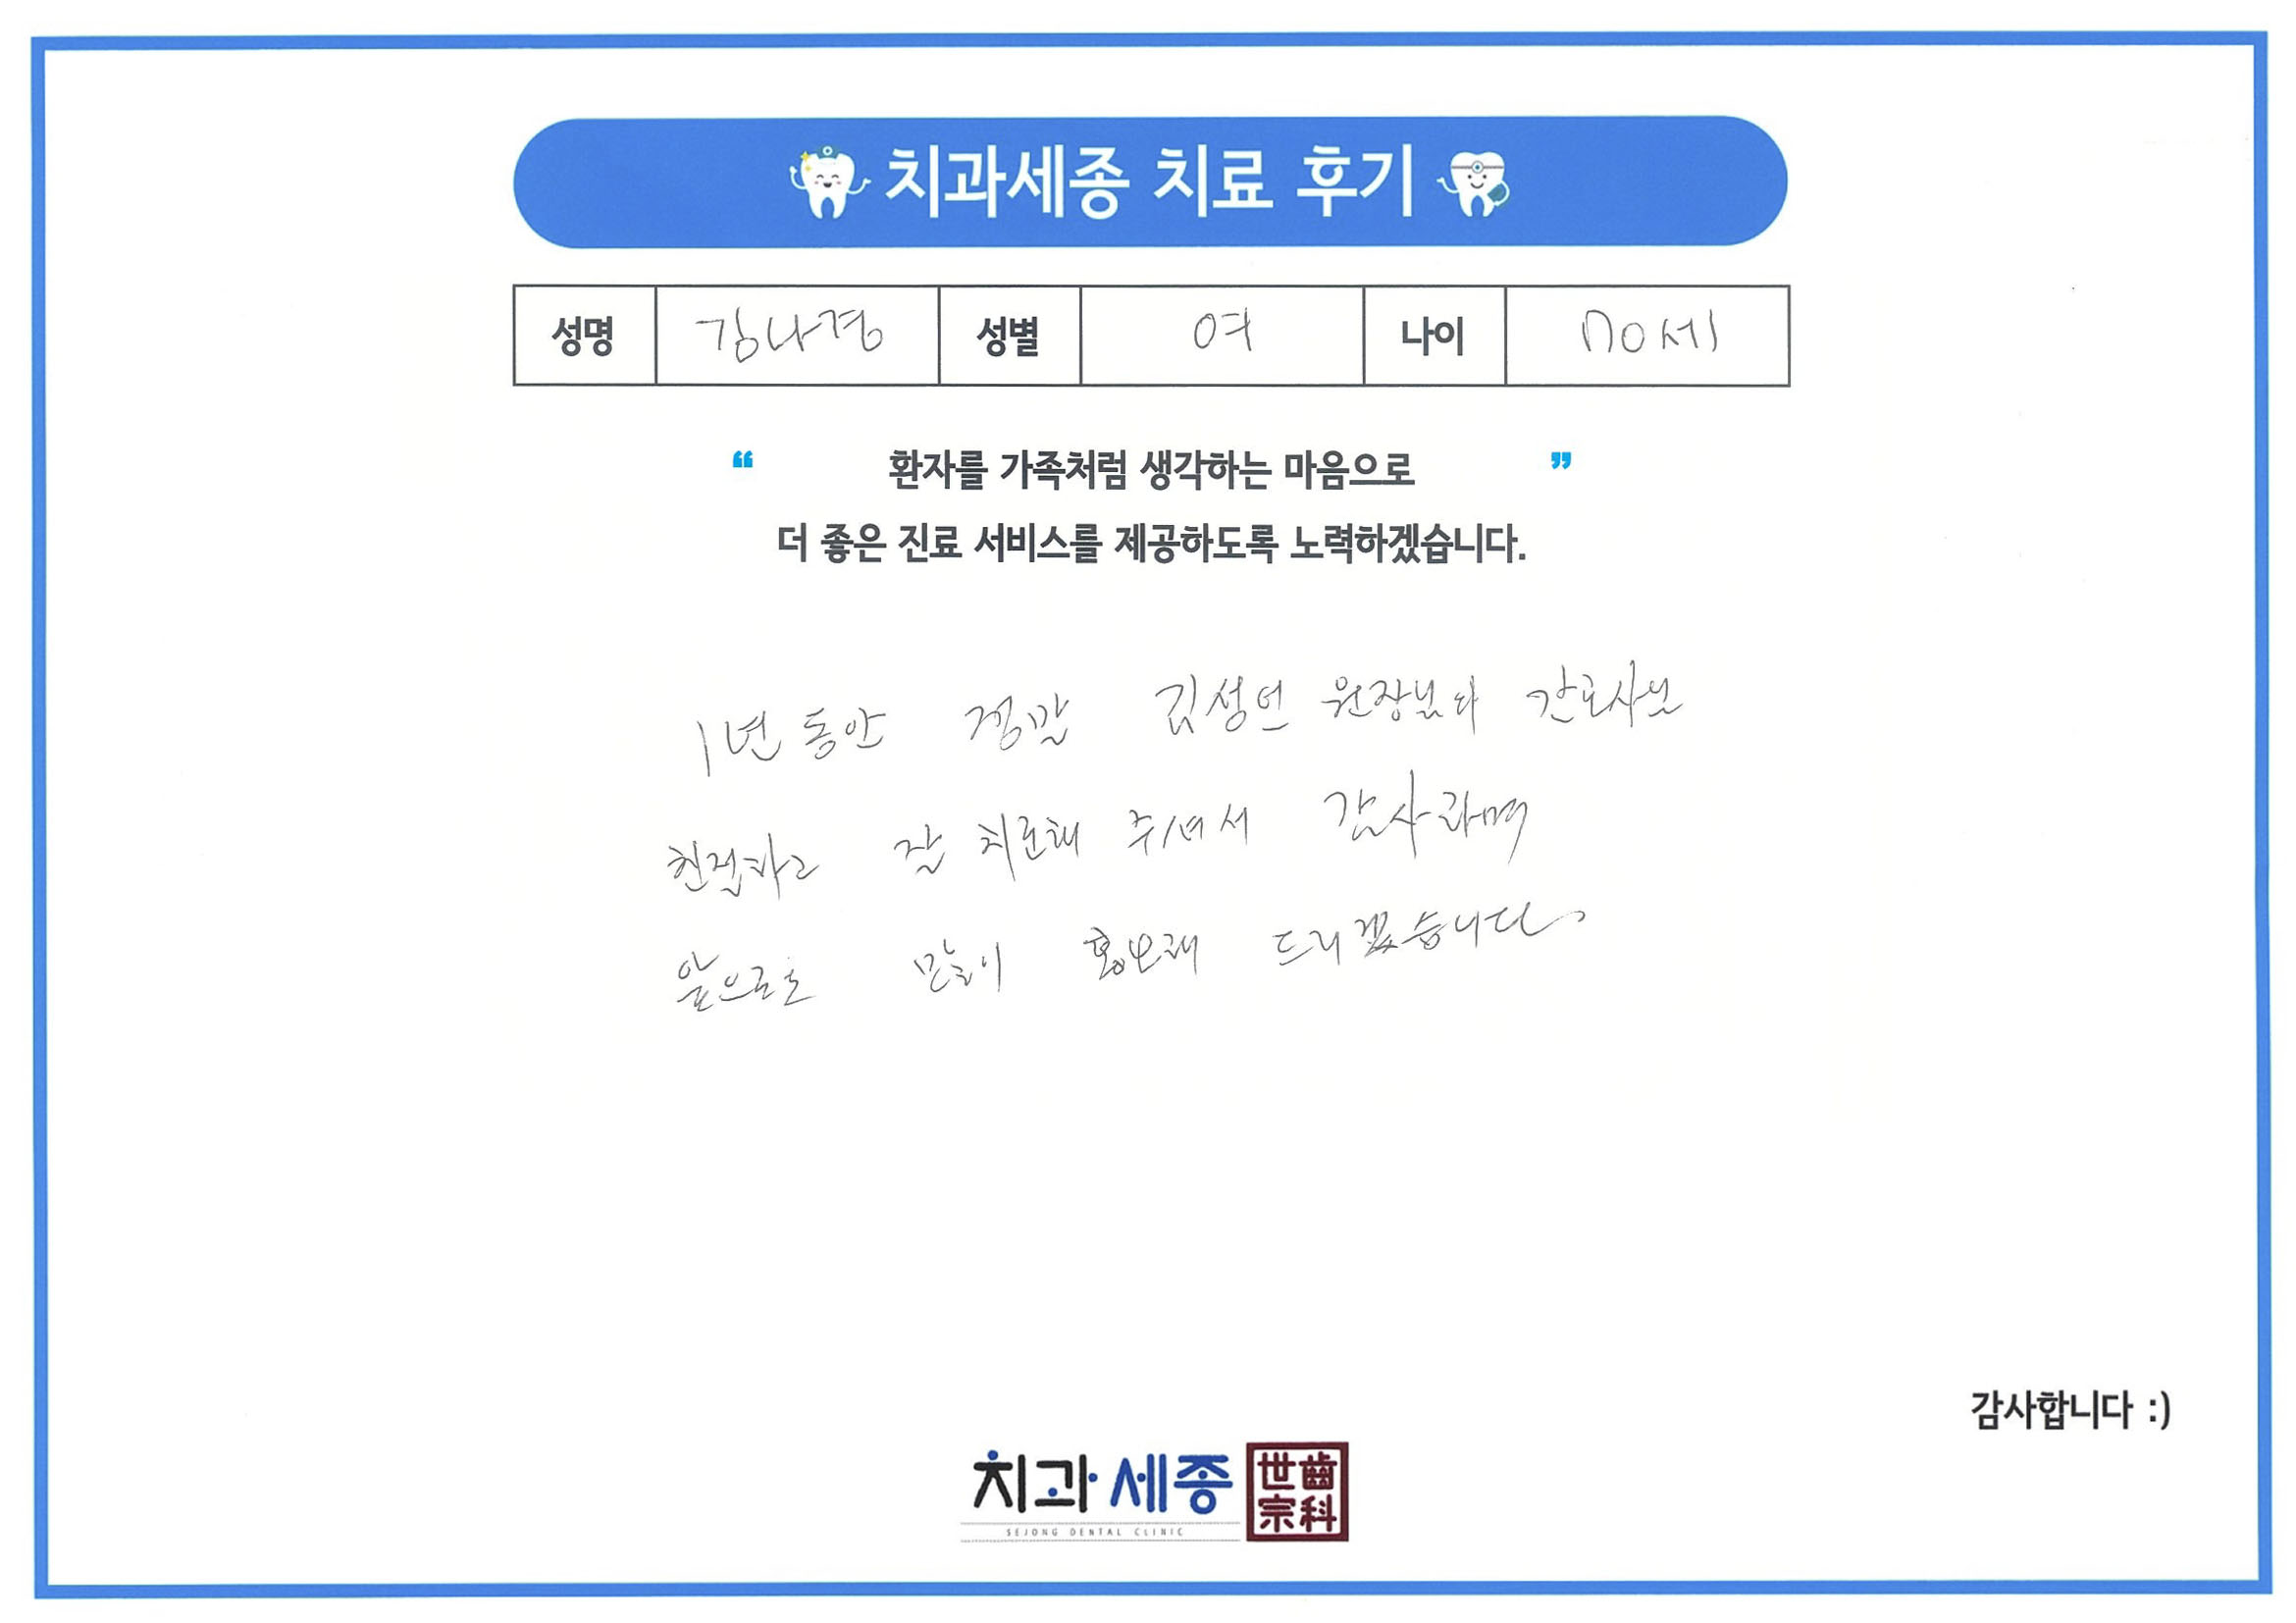 치과세종 치료 후기
성명 김나경 성별 여 나이 70세
“ 환자를 가족처럼 생각하는 마음으로 ”
더 좋은 진료 서비스를 제공하도록 노력하겠습니다.
1년 동안 정말 김성언 원장님과 간호사님
친절하고 잘 치료해 주셔서 감사하며
앞으로도 많이 홍보해 드리겠습니다.
감사합니다 :)
치과세종 世齒
宗科
SEJONG DENTAL CLINIC